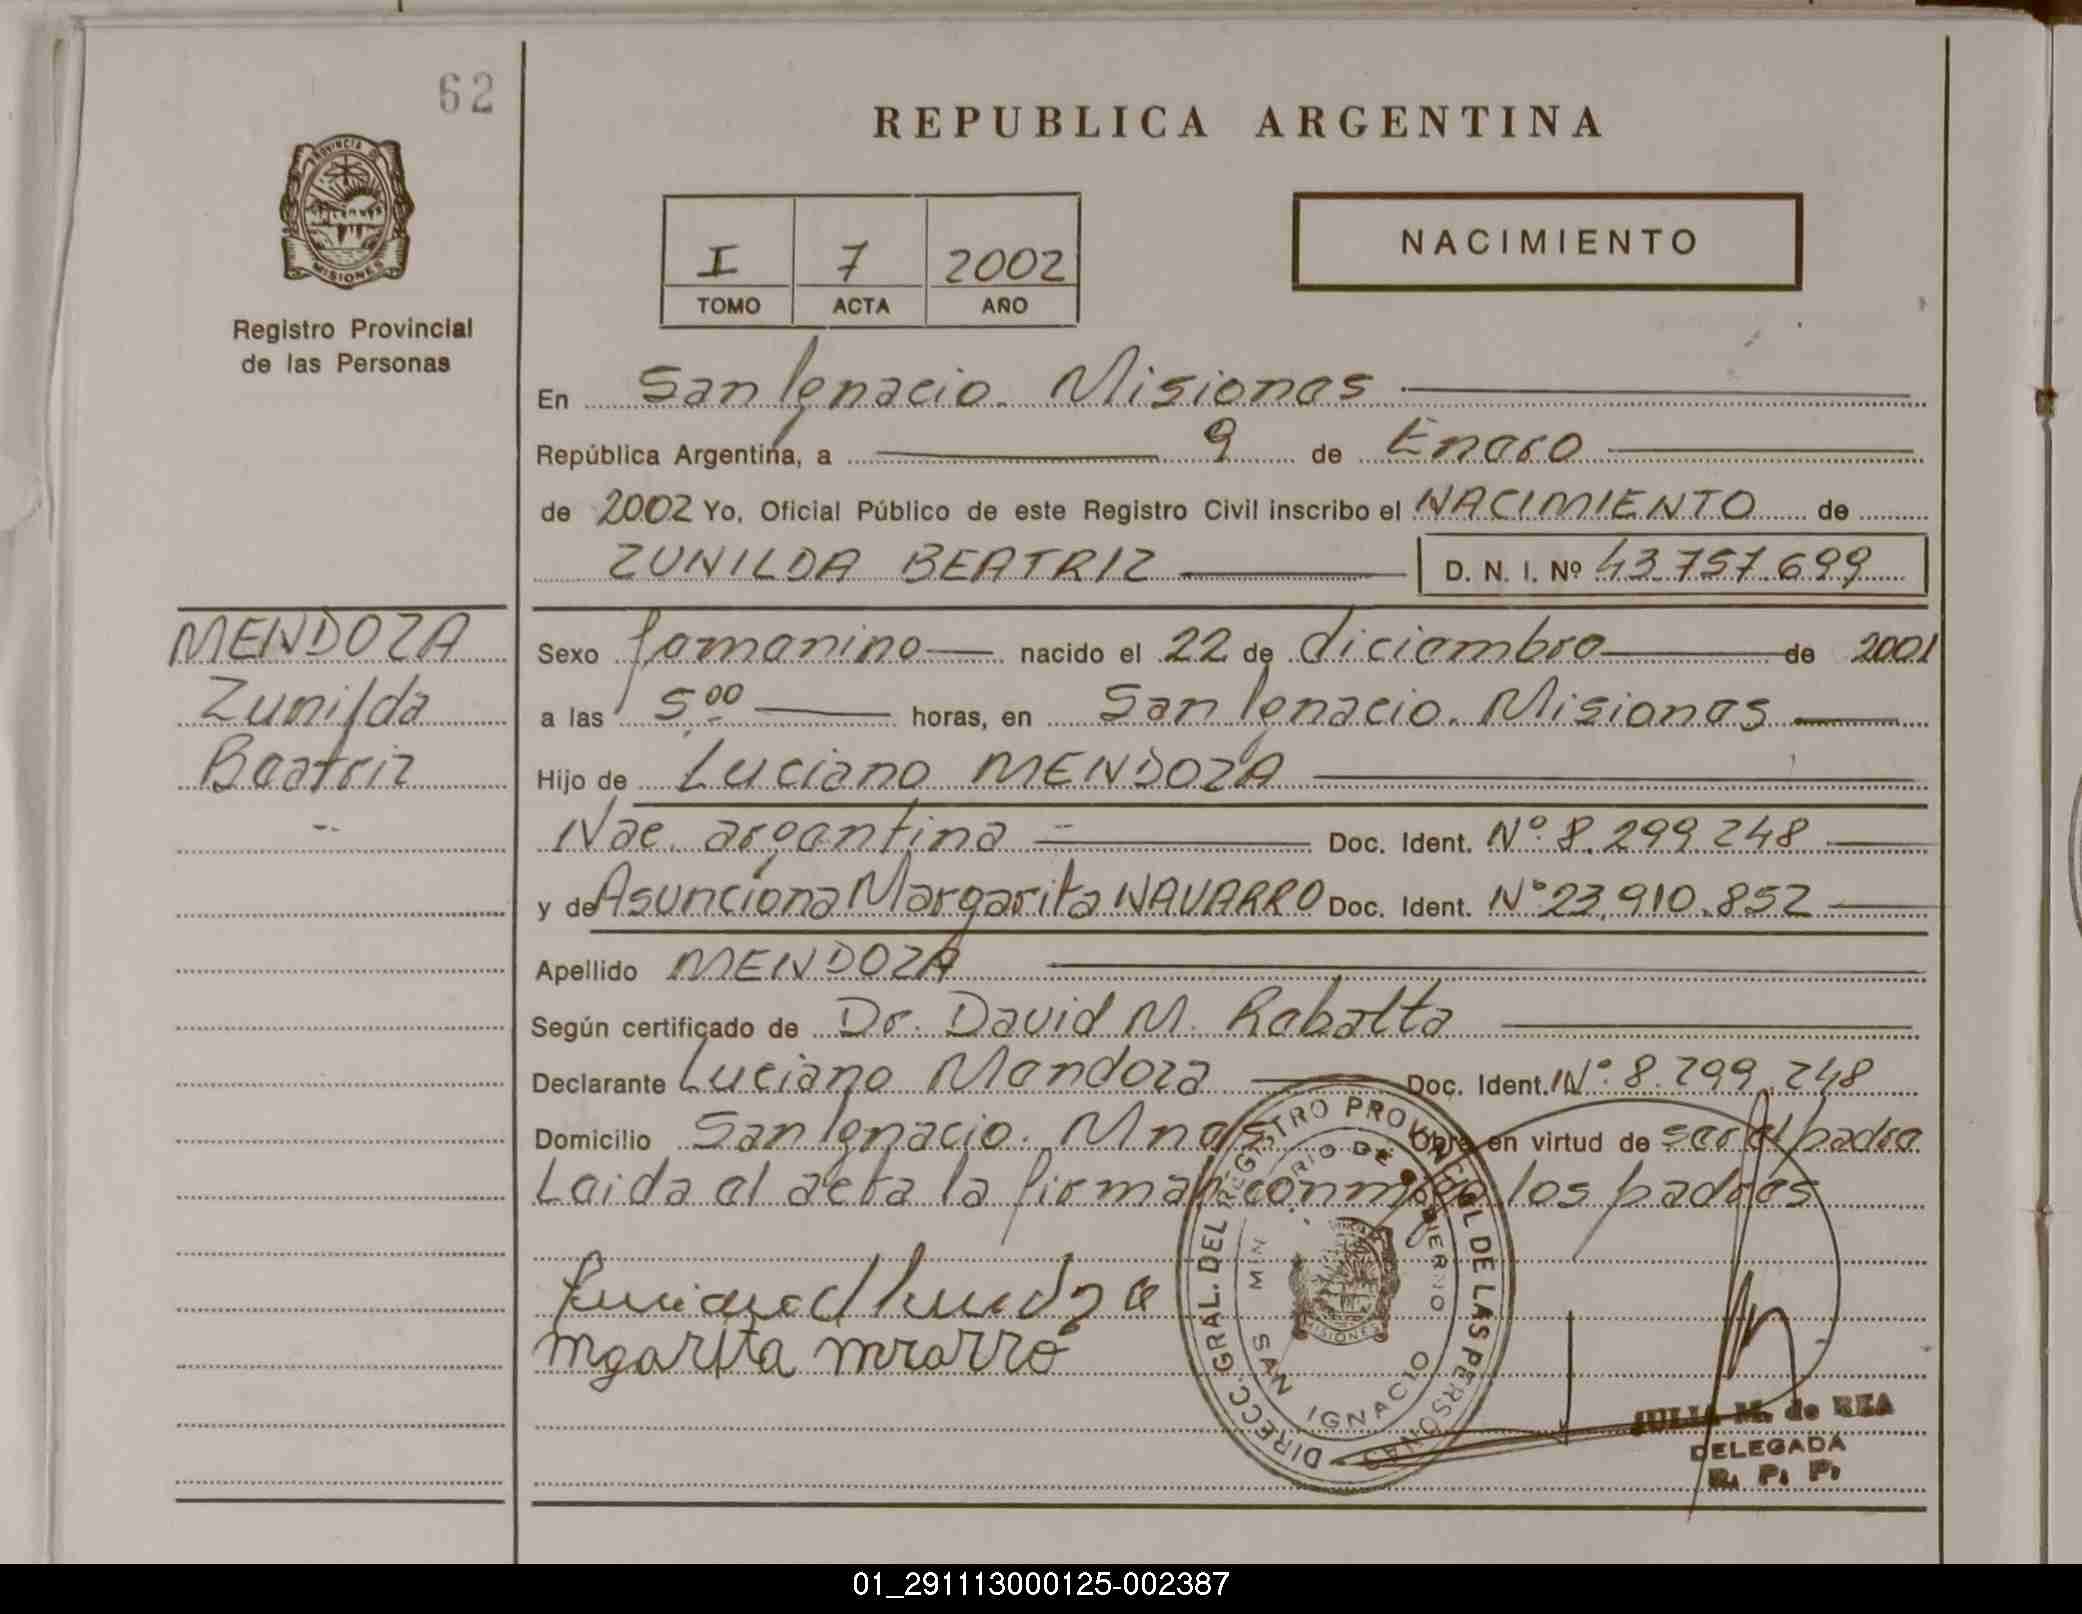 62
REPUBLICA ARGENTINA
PROVINCIA DE
MISIONES
Registro Provincial
de las Personas
I 7 2002
TOMO ACTA AÑO
NACIMIENTO
En San Ignacio. Misiones
República Argentina, a 9 de Enero
de 2002 Yo, Oficial Público de este Registro Civil inscribo el NACIMIENTO de
ZUNILDA BEATRIZ D. N. I. Nº 43.757.699
MENDOZA
Zunilda
Beatriz
Sexo femenino nacido el 22 de diciembre de 2001
a las 5.00 horas, en San Ignacio. Misiones
Hijo de Luciano MENDOZA
Nac. argentina Doc. Ident. Nº 8.299.248
y de Asunciona Margarita NAVARRO Doc. Ident. Nº 23.910.852
Apellido MENDOZA
Según certificado de Dr. David M. Rebatta
Declarante Luciano Mendoza Doc. Ident. Nº 8.299.248
Domicilio San Ignacio. Mnes Obra en virtud de ser el padre
Leida el acta la firman conmigo los padres
Luciano Mendoza
Mgarita
DIRECC. GRAL. DEL REGISTRO PROVINCIAL DE LAS PERSONAS
MINISTERIO DE GOBIERNO
SAN IGNACIO
MISIONES
JULIA M. de REA
DELEGADA
R. P. P.
01_291113000125-002387